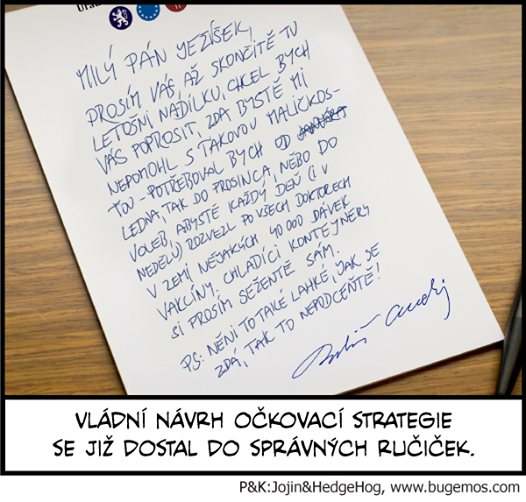 MILÝ PÁN YEZÍŠEK,
PROSÍM VÁS, AŽ SKONČÍTĚ TU
LETOŠNÍ NADÍLKU, CHCEL BYCH
VÁS POPROSIT, ZDA BYSTĚ MI
NEPOMOHL S TAKOVOU MALIČKOS-
ŤOU - POTŘEBOVAL BYCH OD
LEDNA, TAK DO PROSINCA, NĚBO DO
VOLEB, ABYSTĚ KAŽDÝ DEŇ (I V
NEDĚLU) ROZVEZL PO VŠECH DOKTORECH
V ZEMI NĚJAKÝCH 40 000 DÁVEK
VAKCÍNY. CHLADÍCÍ KONTEJNERY
SI PROSÍM SEŽENTĚ SÁM.
PS: NĚNÍ TO TAKÉ LAHKÉ, JAK SE
ZDÁ, TAK TO NEPODCEŇTĚ!
VLÁDNÍ NÁVRH OČKOVACÍ STRATEGIE
SE JIŽ DOSTAL DO SPRÁVNÝCH RUČIČEK.
P&K:Jojin&HedgeHog, www.bugemos.com